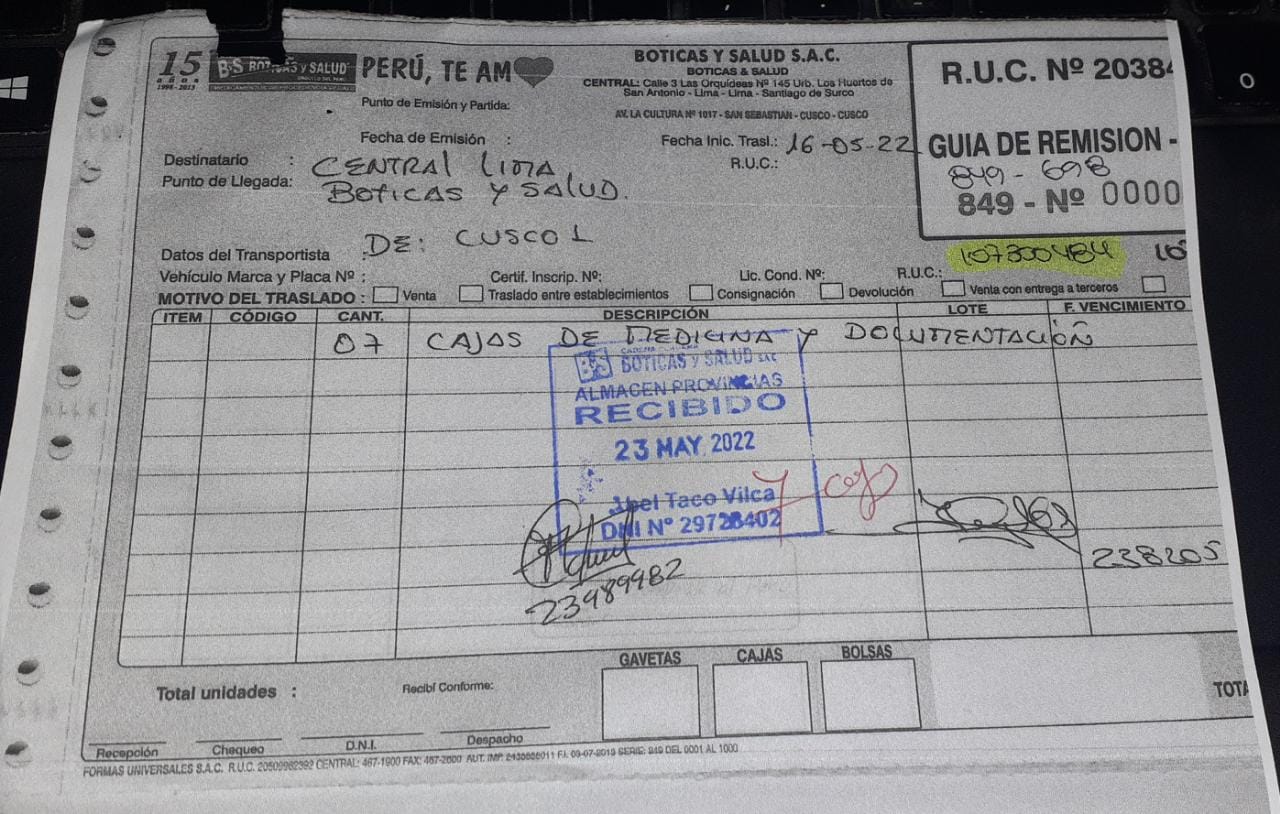 15 años B·S BOTICAS y SALUD PERÚ, TE AM
1998-2013
BOTICAS Y SALUD S.A.C.
BOTICAS & SALUD
CENTRAL: Calle 3 Las Orquídeas Nº 145 Urb. Los Huertos de
San Antonio - Lima - Lima - Santiago de Surco
AV. LA CULTURA Nº 1017 - SAN SEBASTIAN - CUSCO - CUSCO
R.U.C. Nº 20384
GUIA DE REMISION -
849 - 698
849 - Nº 0000
Punto de Emisión y Partida:
Fecha de Emisión :
Fecha Inic. Trasl.: 16-05-22
Destinatario : CENTRAL LIMA,
R.U.C.:
Punto de Llegada: BOTICAS Y SALUD.
Datos del Transportista : DE: CUSCO 1
107300484
Vehículo Marca y Placa Nº : Certif. Inscrip. Nº: Lic. Cond. Nº: R.U.C.:
MOTIVO DEL TRASLADO : Venta Traslado entre establecimientos Consignación Devolución Venta con entrega a terceros
ITEM CÓDIGO CANT. DESCRIPCIÓN LOTE F. VENCIMIENTO
07 CAJAS DE MEDICINA Y DOCUMENTACIÓN
BS BOTICAS y SALUD SAC
ALMACEN PROVINCIAS
RECIBIDO
23 MAY 2022
Abel Taco Vilca
DNI Nº 29728402
7
238205
23989982
GAVETAS CAJAS BOLSAS
Total unidades : Recibí Conforme:
TOTA
Recepción Chequeo D.N.I. Despacho
FORMAS UNIVERSALES S.A.C. R.U.C. 20509982392 CENTRAL: 467-1900 FAX: 467-2000 AUT. IMP. F.I. 03-07-2013 SERIE: 849 DEL 0001 AL 1000